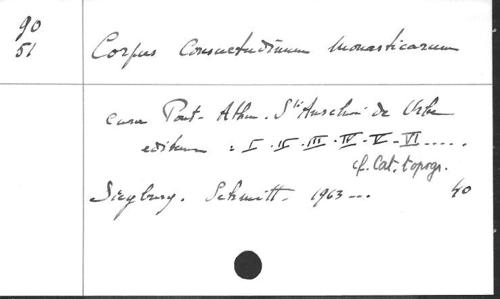 90
51
Corpus Consuetudinum Monasticarum
cura Pont. Athen. Sti Anselmi de Urbe
editum : I. II. III. IV. V. VI .....
cf. Cat. topogr.
Siegburg. Schmitt. 1963 ... 40